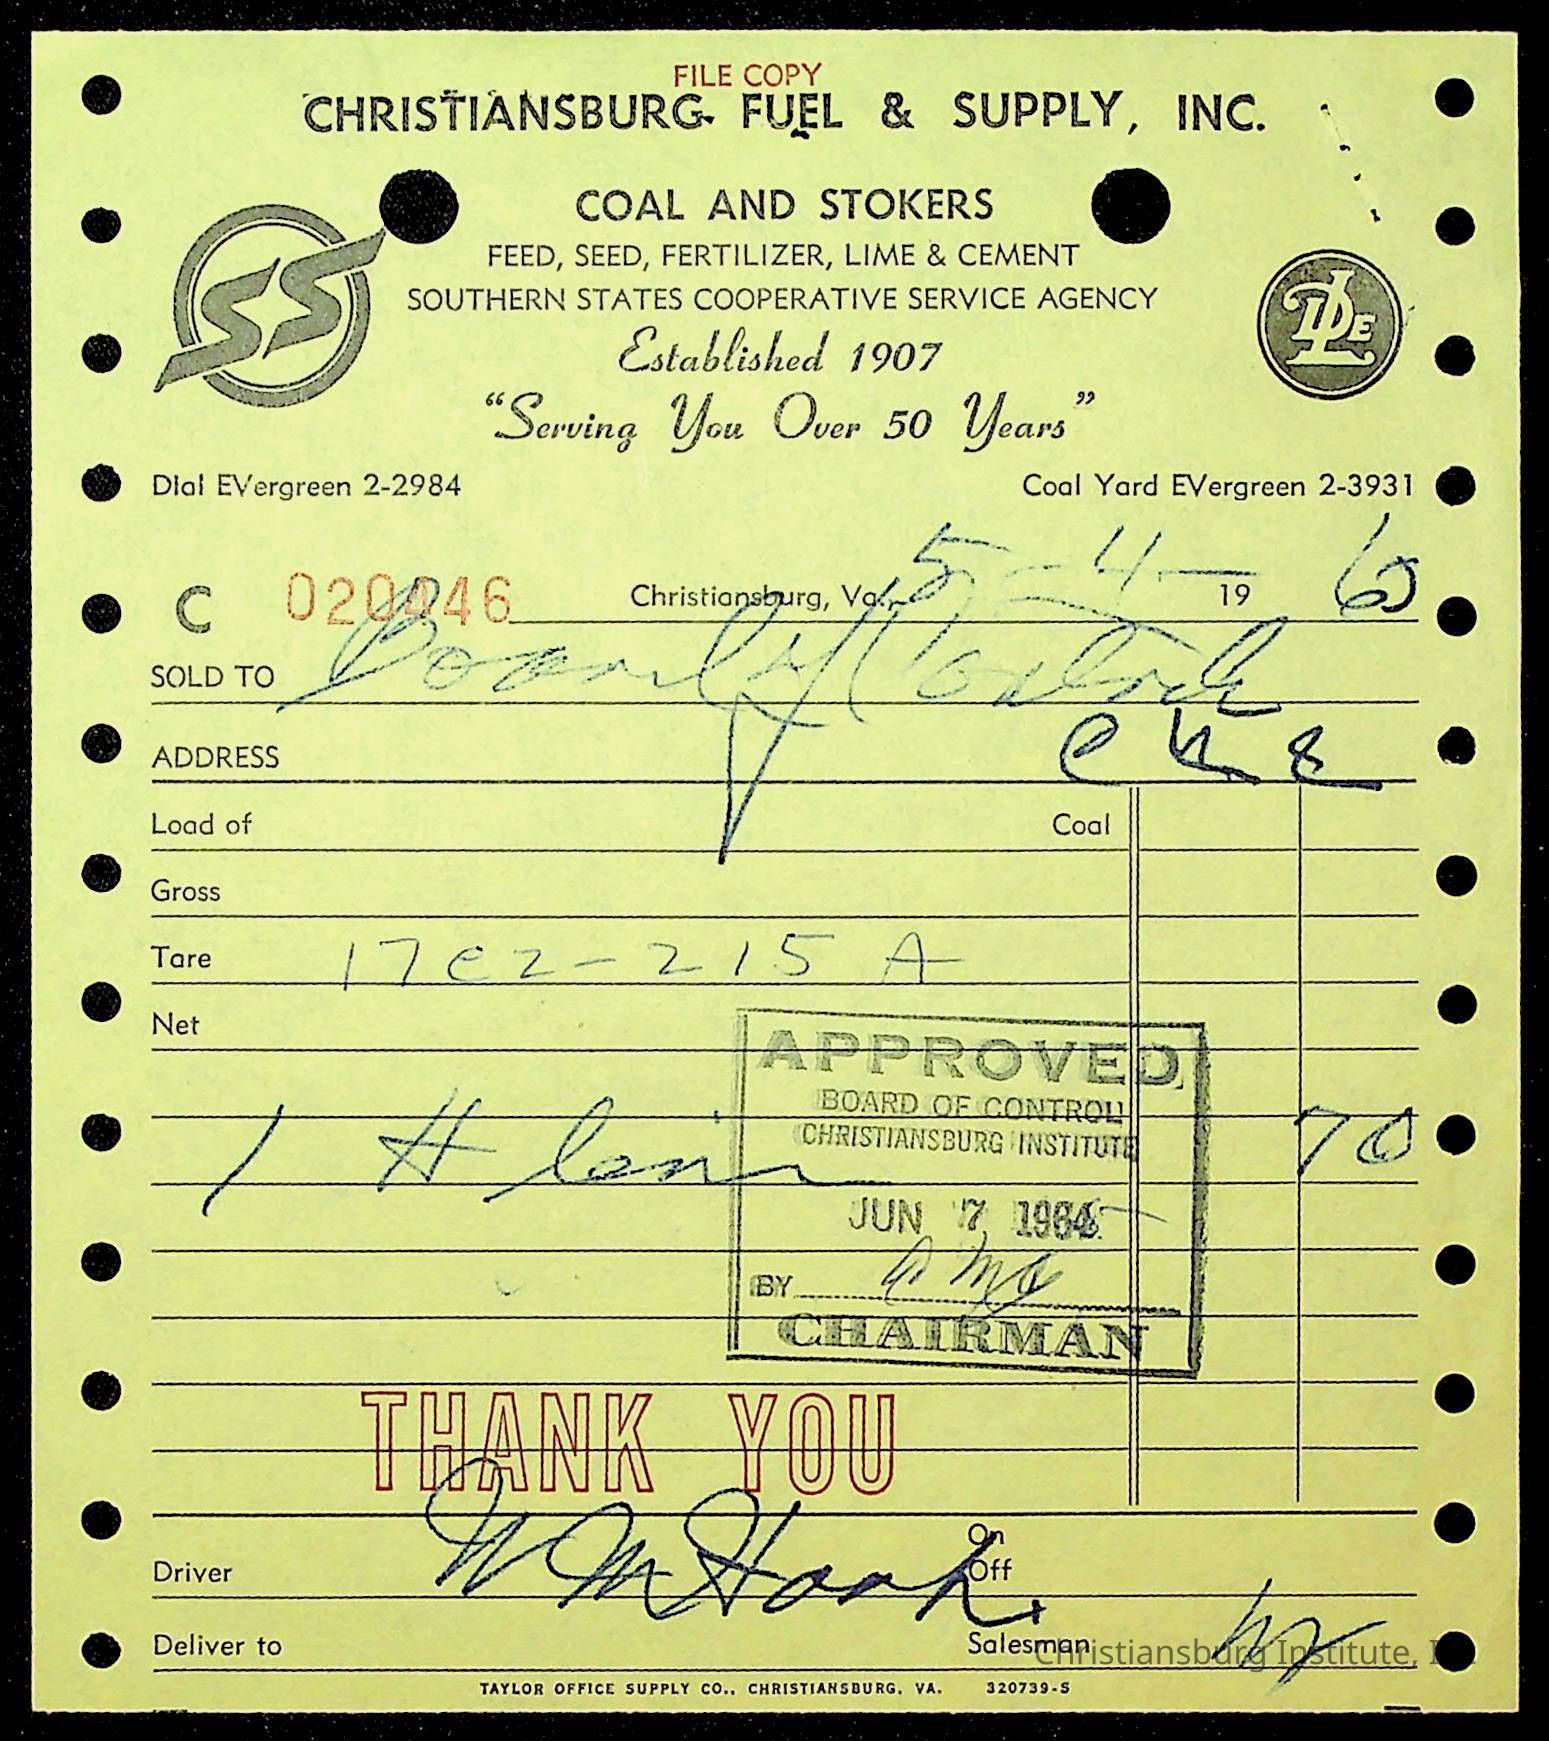 FILE COPY
CHRISTIANSBURG FUEL & SUPPLY, INC.
COAL AND STOKERS
FEED, SEED, FERTILIZER, LIME & CEMENT
SOUTHERN STATES COOPERATIVE SERVICE AGENCY
Established 1907
"Serving You Over 50 Years"
SS
DPLE
Dial EVergreen 2-2984 Coal Yard EVergreen 2-3931
C 020446 Christiansburg, Va., 5-4- 19 65
SOLD TO Board of Control
ADDRESS
Load of Coal
Gross
Tare 17e2-215 A
Net
APPROVED
BOARD OF CONTROL
CHRISTIANSBURG INSTITUTE
1 # 70
JUN 7 1965
BY
CHAIRMAN
THANK YOU
On
Driver Wm Hook Off
Deliver to Salesman
Christiansburg Institute, Inc.
TAYLOR OFFICE SUPPLY CO., CHRISTIANSBURG, VA. 320739-S